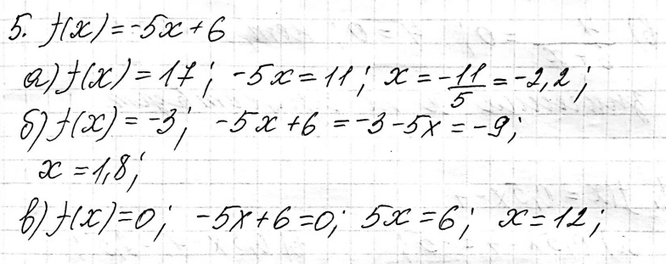 5. f(x) = -5x + 6
а) f(x) = 17; -5x = 11; x = -11/5 = -2,2;
б) f(x) = -3; -5x + 6 = -3 -5x = -9;
x = 1,8;
в) f(x) = 0; -5x + 6 = 0; 5x = 6; x = 12;